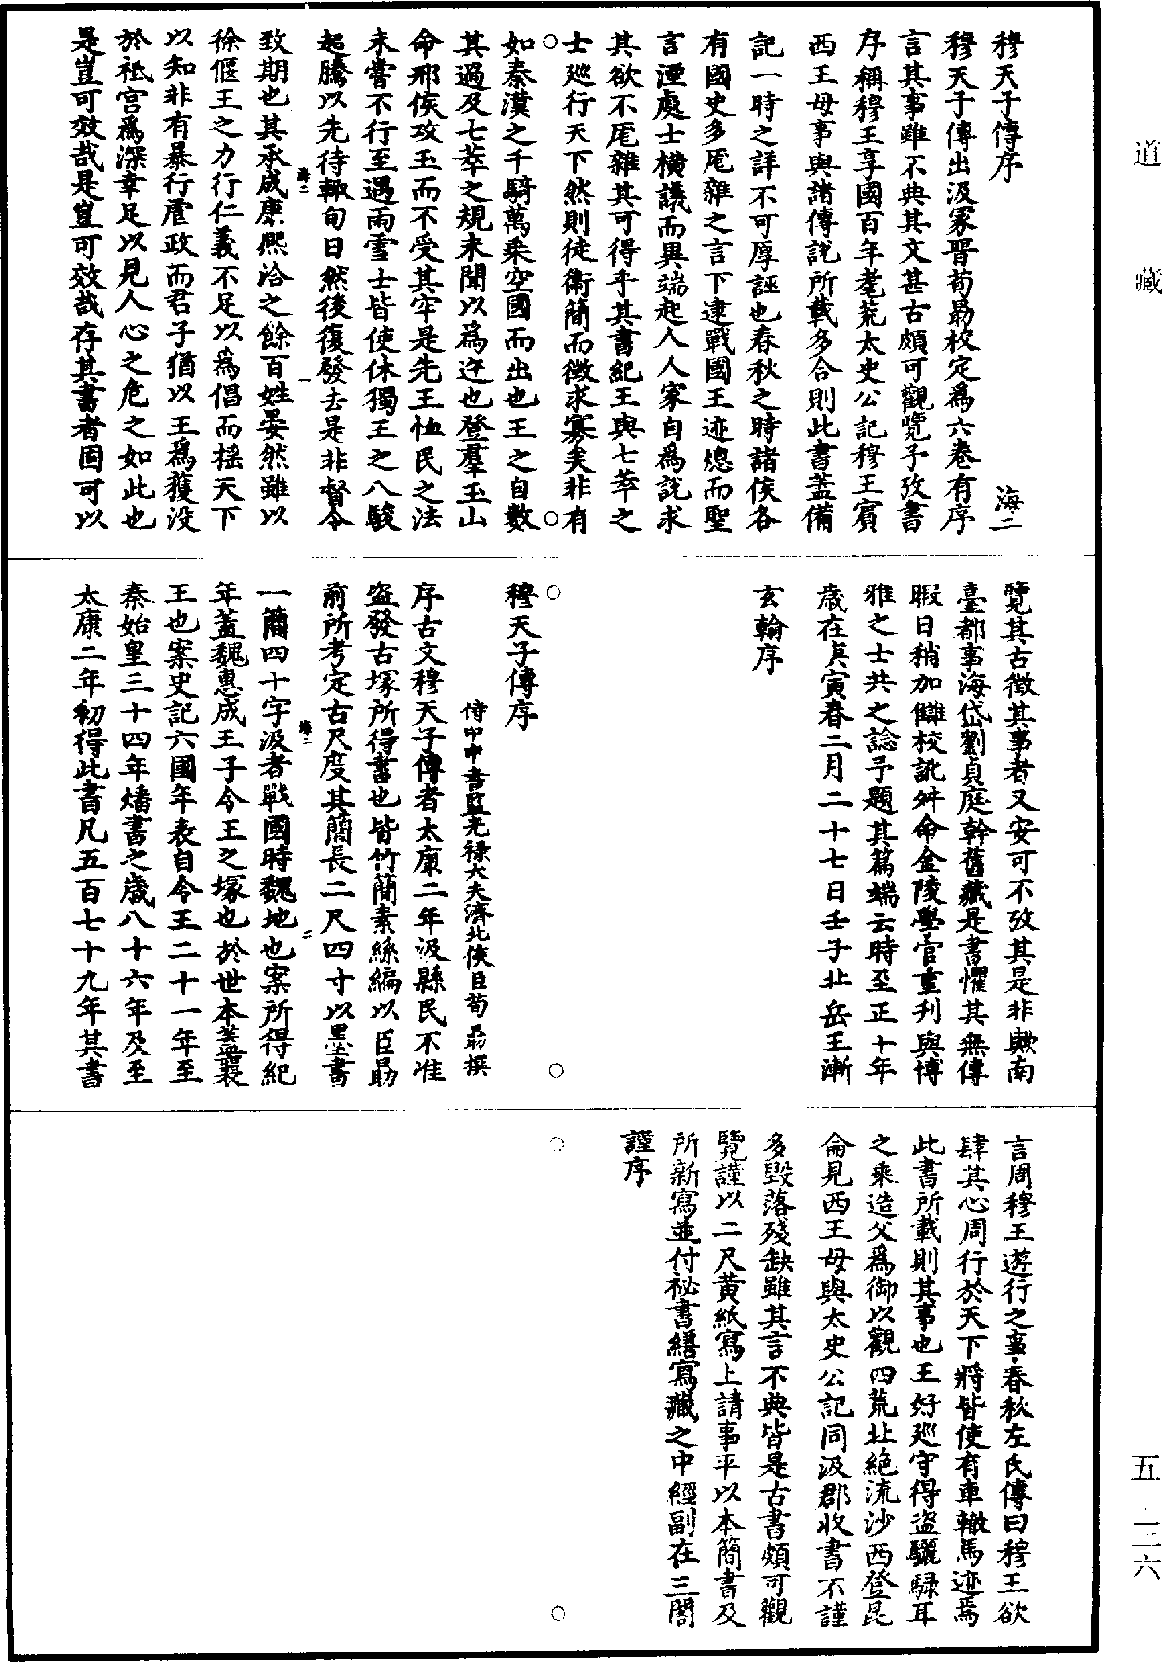 道藏
穆天子傳序
海二
穆天子傳出汲冢晋荀勗校定為六卷有序
言其事雖不典其文甚古頗可觀覽予攷書
序稱穆王享國百年耄荒太史公記穆王賓
西王母事與諸傳說所載多合則此書蓋備
記一時之詳不可厚誣也春秋之時諸侯各
有國史多厖雜之言下逮戰國王迹熄而聖
言湮處士橫議而異端起人人家自為說求
其欲不厖雜其可得乎其書紀王與七萃之
士巡行天下然則徒衛簡而徵求寡矣非有
如秦漢之千騎萬乘空國而出也王之自數
其過及七萃之規未聞以為迕也登羣玉山
命邢侯攻玉而不受其牢是先王恤民之法
未嘗不行至遇雨雪士皆使休獨王之八駿
超騰以先待輒旬日然後復發去是非督令
海二
一
致期也其承成康熙洽之餘百姓晏然雖以
徐偃王之力行仁義不足以為倡而搖天下
以知非有暴行虐政而君子猶以王為獲没
於祇宮為深幸足以見人心之危之如此也
是豈可效哉是豈可效哉存其書者固可以
覽其古徵其事者又安可不攷其是非歟南
臺都事海岱劉貞庭幹舊藏是書懼其無傳
暇日稍加讎校訛舛命金陵學官重刊與博
雅之士共之諗予題其篇端云時至正十年
歲在庚寅春二月二十七日壬子北岳王漸
玄翰序
穆天子傳序
侍中中書監光祿大夫濟北侯臣荀勗撰
序古文穆天子傳者太康二年汲縣民不准
盜發古塚所得書也皆竹簡素絲編以臣勗
前所考定古尺度其簡長二尺四寸以墨書
海二
二
一簡四十字汲者戰國時魏地也案所得紀
年蓋魏惠成王子今王之塚也於世本蓋襄
王也案史記六國年表自今王二十一年至
秦始皇三十四年燔書之歲八十六年及至
太康二年初得此書凡五百七十九年其書
言周穆王遊行之事春秋左氏傳曰穆王欲
肆其心周行於天下將皆使有車轍馬迹焉
此書所載則其事也王好巡守得盜驪騄耳
之乘造父為御以觀四荒北絕流沙西登昆
侖見西王母與太史公記同汲郡收書不謹
多毀落殘缺雖其言不典皆是古書頗可觀
覽謹以二尺黄紙寫上請事平以本簡書及
所新寫並付祕書繕寫藏之中經副在三閣
謹序
五一三六